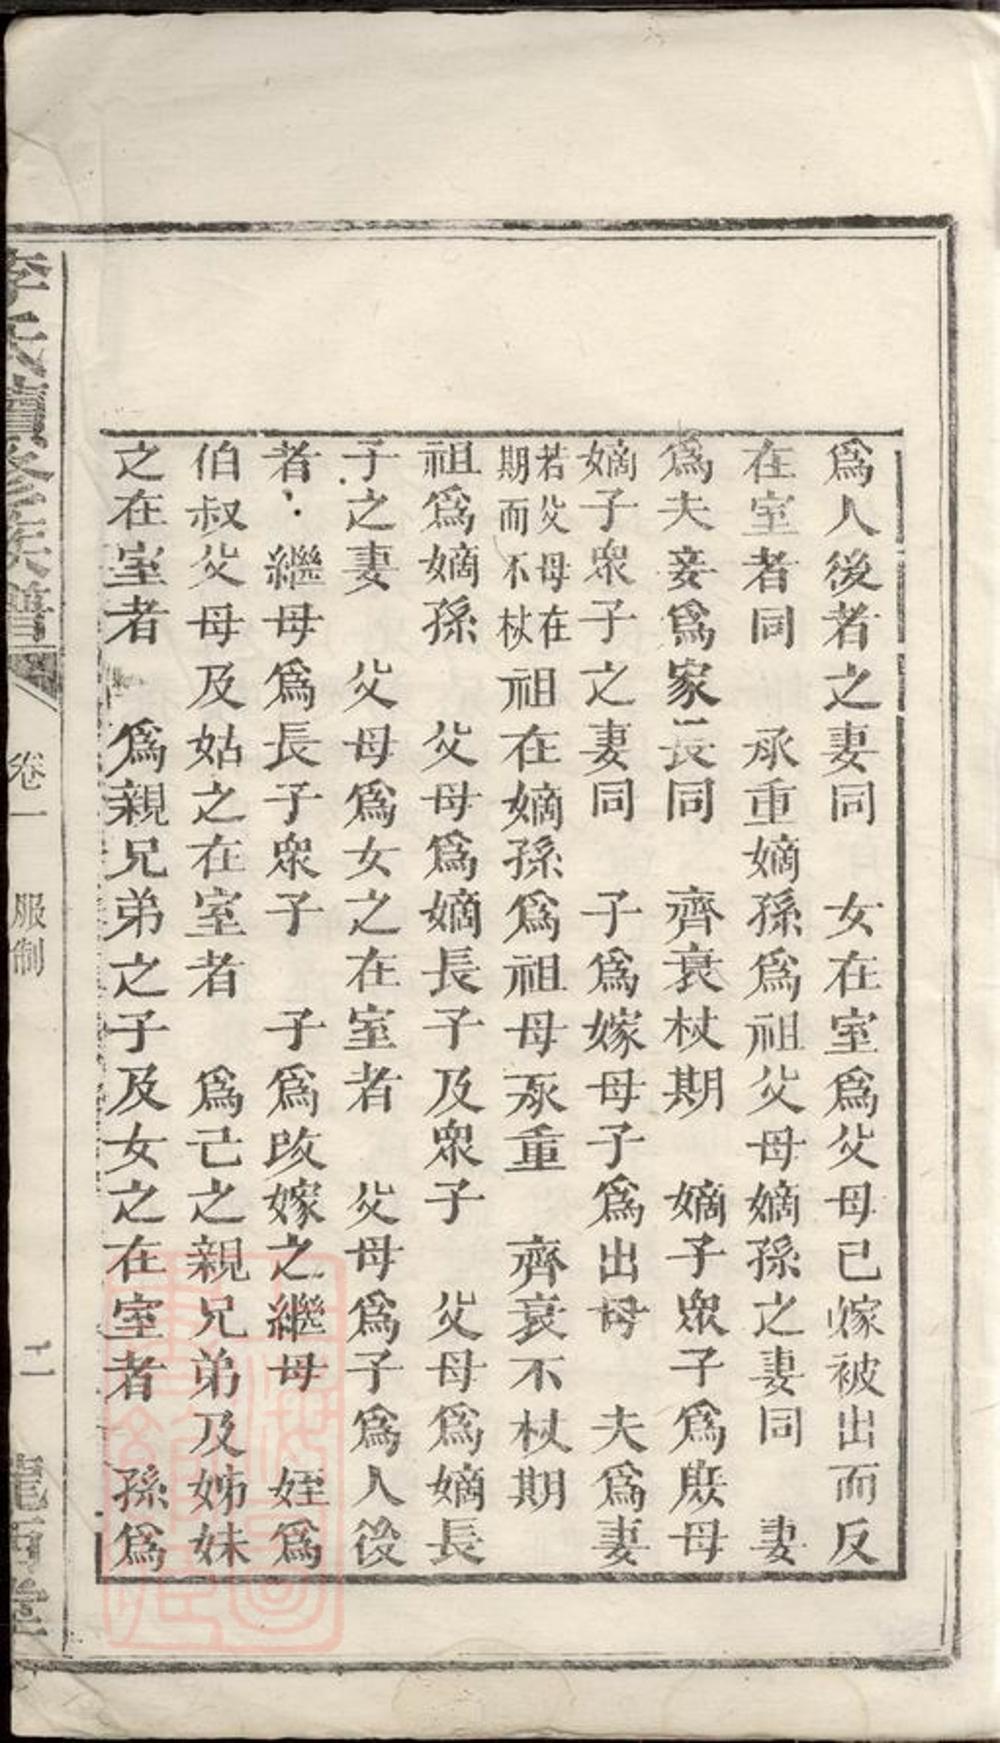 爲人後者之妻同　女在室爲父母已嫁被出而反
在室者同　承重嫡孫爲祖父母嫡孫之妻同　妻
爲夫妾爲家長同　齊衰杖期　嫡子衆子爲庶母
嫡子衆子之妻同　子爲嫁母子爲出母　夫爲妻
若父母在
期而不杖
祖在嫡孫爲祖母承重　齊衰不杖期
祖爲嫡孫　父母爲嫡長子及衆子　父母爲嫡長
子之妻　父母爲女之在室者　父母爲子爲人後
者　繼母爲長子衆子　子爲改嫁之繼母　姪爲
伯叔父母及姑之在室者　爲己之親兄弟及姊妹
之在室者　爲親兄弟之子及女之在室者　孫爲
李氏續修族譜
卷一
服制
二
龍西堂
上海圖書館藏